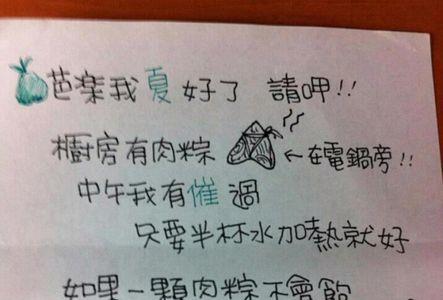 芭楽我夏好了 請呷!!
廚房有肉粽 ←在電鍋旁!!
中午我有催過
只要半杯水加熱就好
如果一顆肉粽不會飽